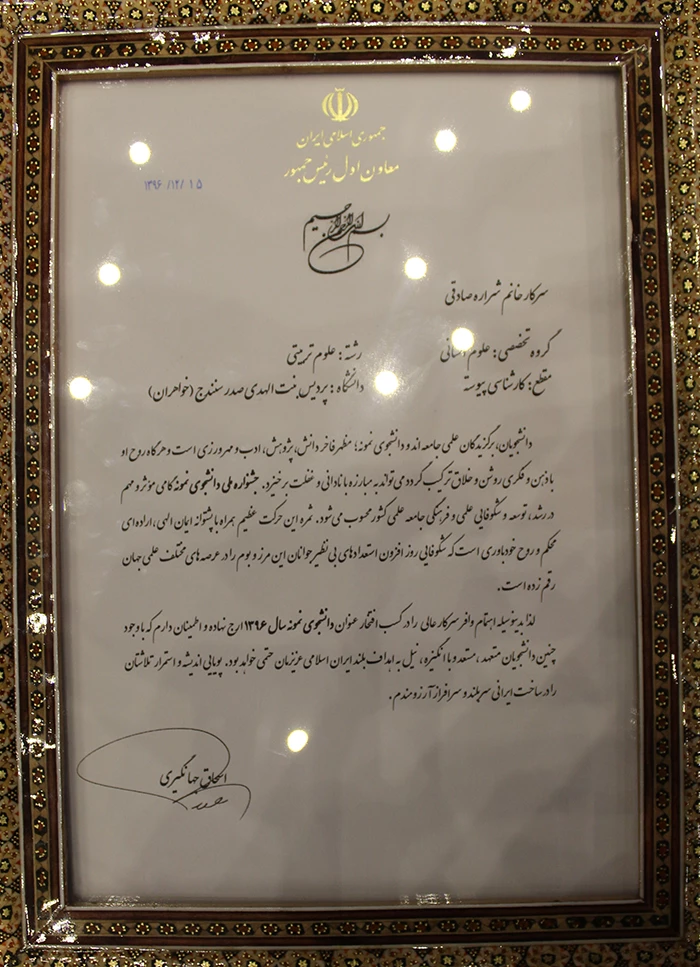 جمهوری اسلامی ایران
معاون اول رئیس جمهور
۱۳۹۶/۱۲/۱۵
بسم الله الرحمن الرحیم
سرکار خانم شراره صادقی
گروه تخصصی: علوم انسانی رشته: علوم تربیتی
مقطع: کارشناسی پیوسته دانشگاه: پردیس بنت الهدی صدر سنندج (خواهران)
دانشجویان، برگزیدگان علمی جامعه اند و دانشجوی نمونه؛ مظهر فاخر دانش، پژوهش، ادب و مهرورزی است و هرگاه روح او
با ذهن و فکری روشن و خلاق ترکیب گردد می‌تواند به مبارزه با نادانی و غفلت برخیزد. جشنواره ملی دانشجوی نمونه گامی مؤثر و مهم
در رشد، توسعه و شکوفایی علمی و فرهنگی جامعه علمی کشور محسوب می‌شود. ثمره این حرکت عظیم همراه با پشتوانه ایمان الهی، اراده‌ای
محکم و روح خودباوری است که شکوفایی روز افزون استعدادهای بی نظیر جوانان این مرز و بوم را در عرصه‌های مختلف علمی جهان
رقم زده است.
لذا بدینوسیله اهتمام وافر سرکار عالی را در کسب افتخار عنوان دانشجوی نمونه سال ۱۳۹۶ ارج نهاده و اطمینان دارم که با وجود
چنین دانشجویان متعهد، مستعد و با انگیزه، نیل به اهداف بلند ایران اسلامی عزیزمان حتمی خواهد بود. پویایی اندیشه و استمرار تلاشتان
را در ساخت ایرانی سربلند و سرافراز آرزومندم.
اسحاق جهانگیری